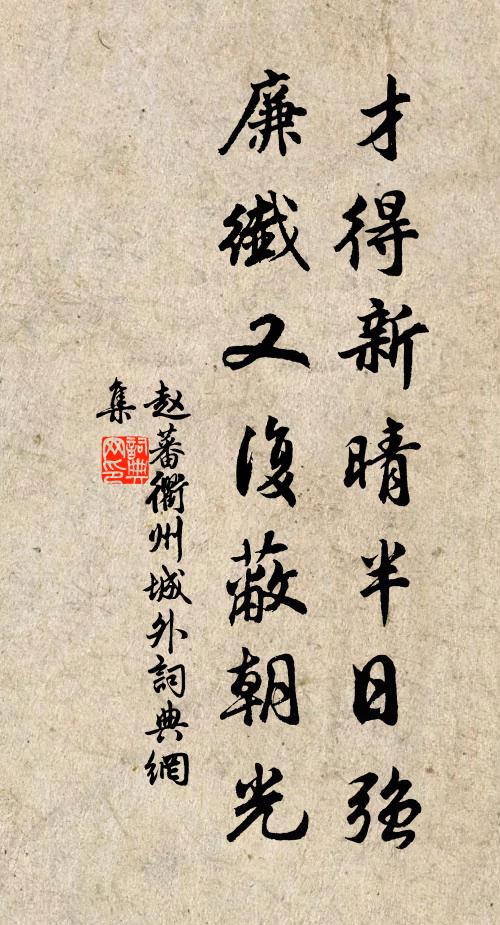 才得新晴半日强
廉纖又復蔽朝光
赵蕃衢州城外詞典網
集
詞典網印